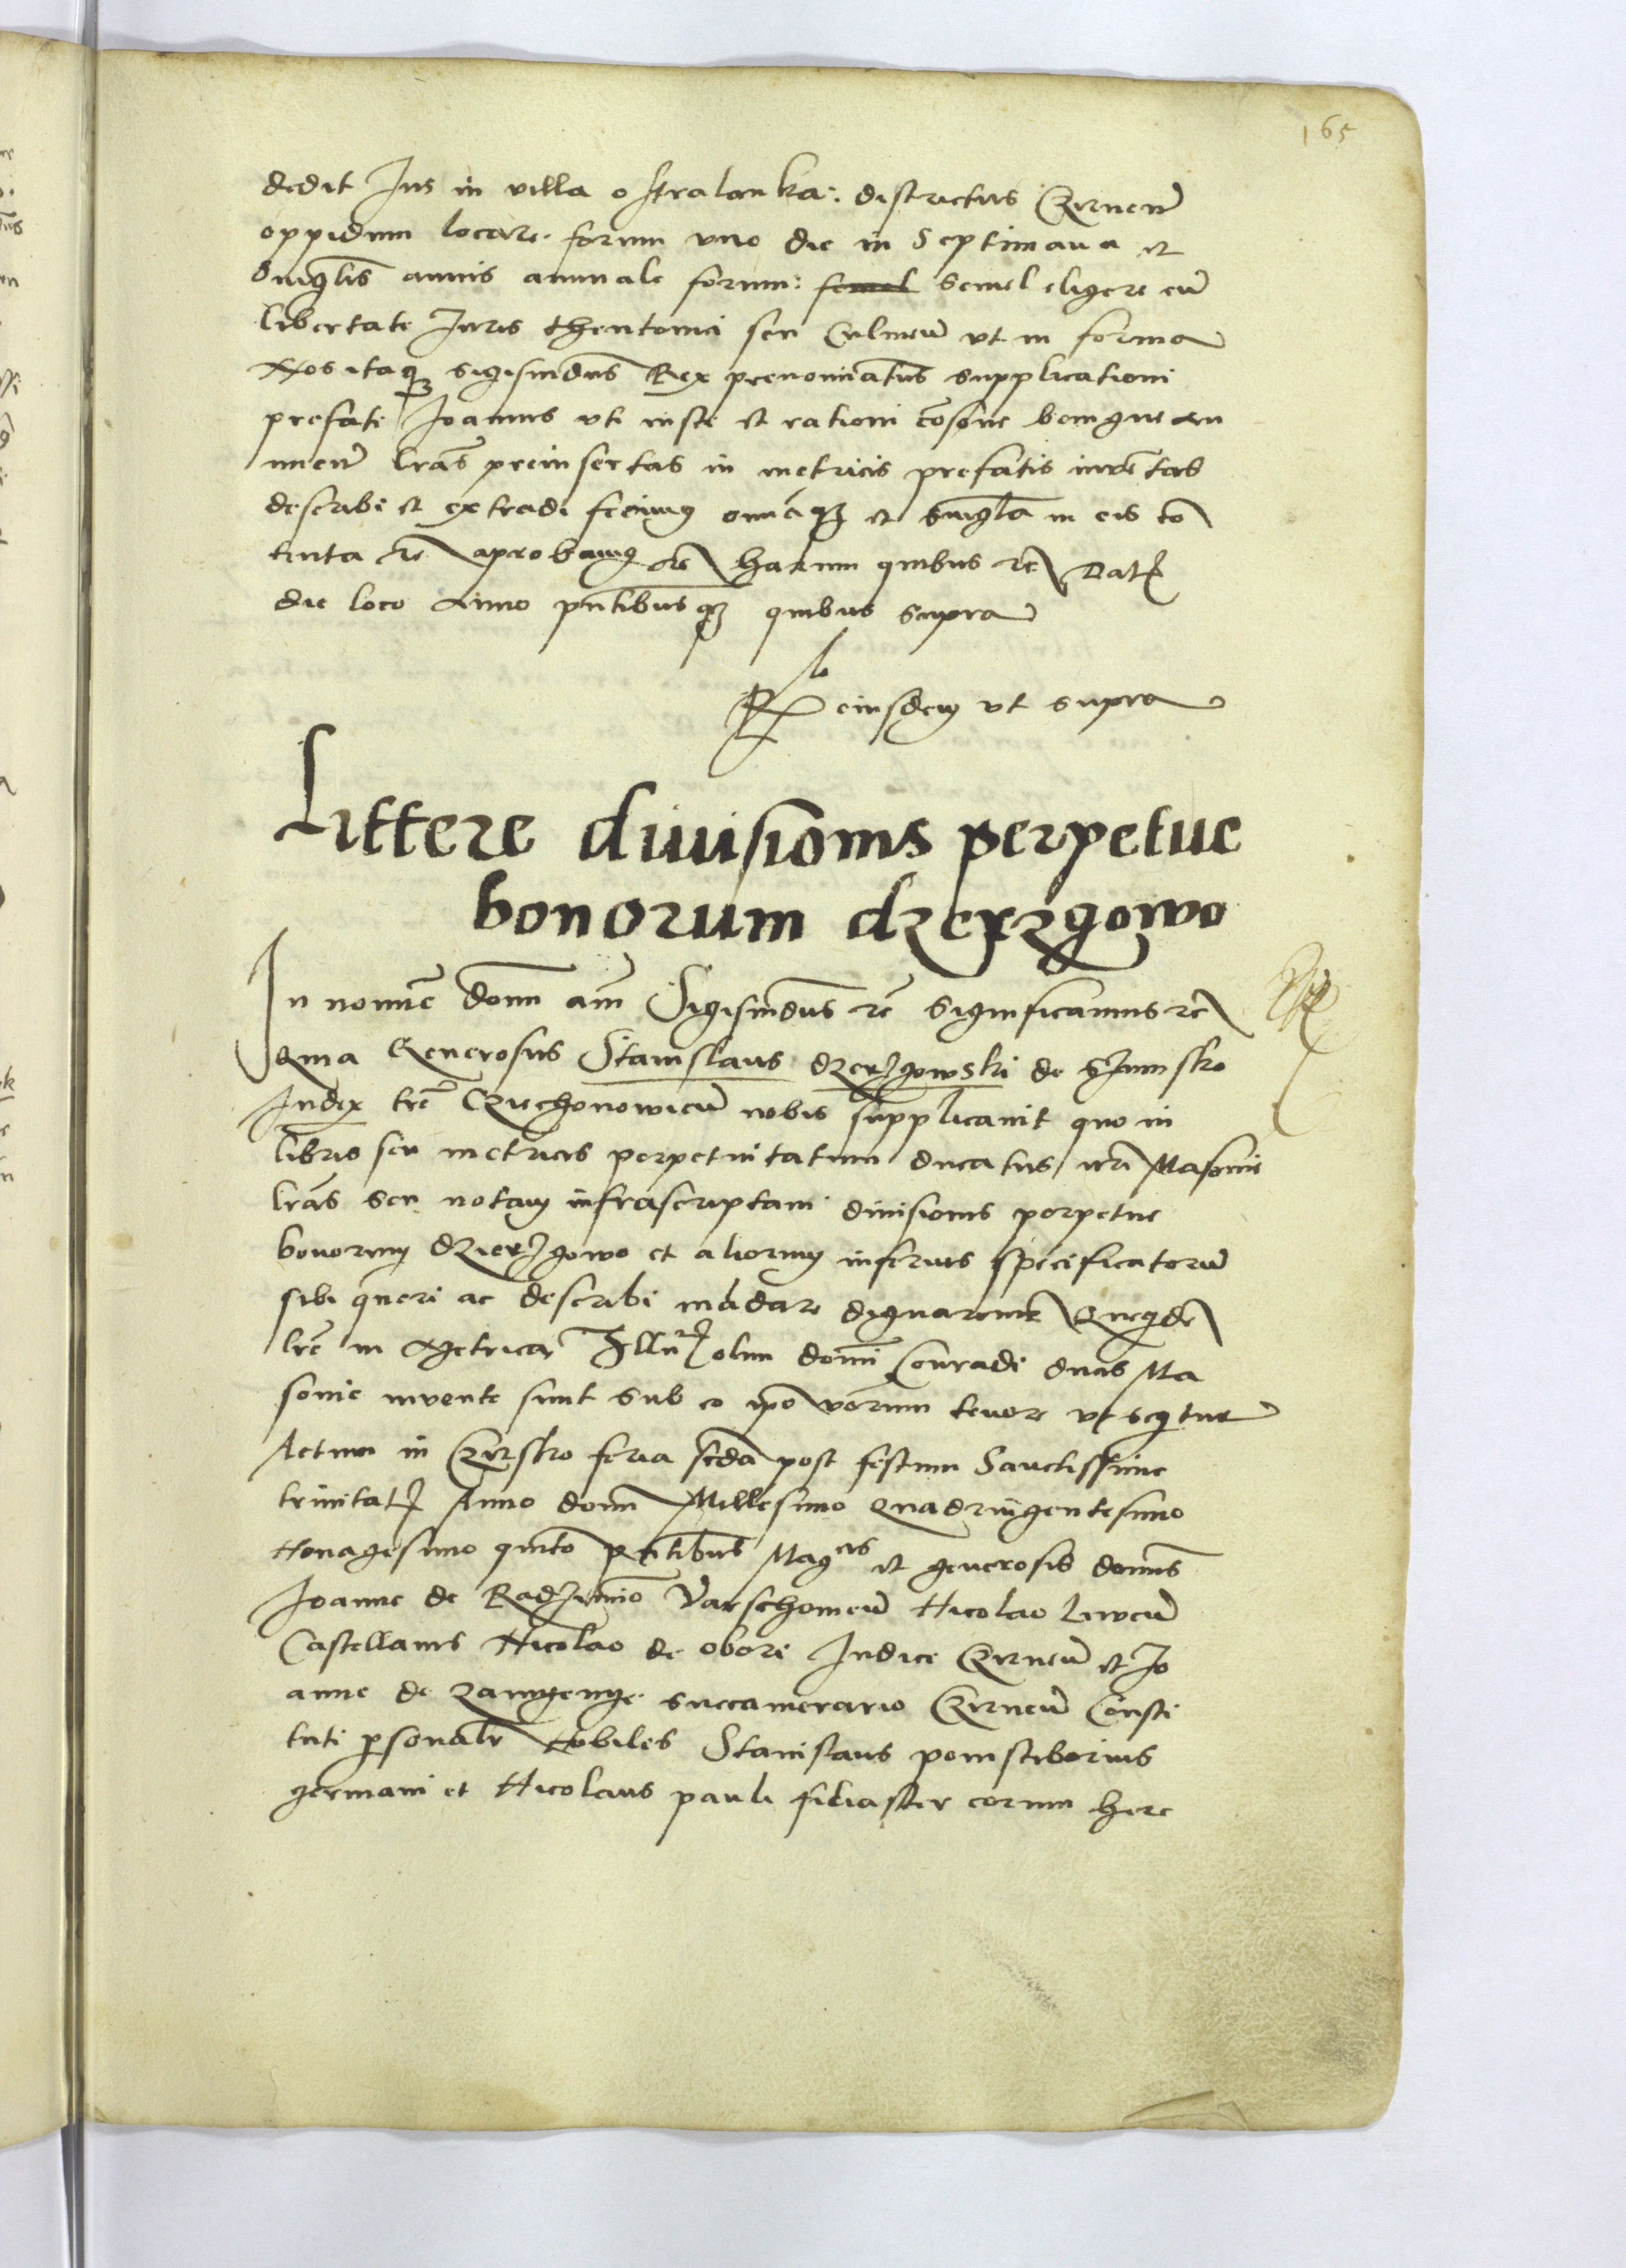 165
dedit Jus in villa ostralanka: districtus Czirnen
oppidum locare. forum uno die in Septimana et
Singlis annis annuale forum: semel Semel eligere cu
libertate Juris theutonici seu Culmen ut in forma
Nos itaq Sigismdus Rex prenominatus supplicationi
prefati Joannis uti iuste et rationi cosone benigne an
nuen lras preinsertas in metricis prefatis inventas
describi et extradi fecimus omiaq et singla in eis con
tenta etc aprobamus etc harum quibus etc Dat
die loco Anno pntibusq quibus supra
Rlo eiusdem ut supra
Littere divisionis perpetue
bonorum dzerzgowo
In nomie domi am Sigismdus etc Significamus etc
Quia Generosus Stanislaus dzerzgowski de
Judex tre Cziechonowien nobis supplicavit quo in
libris seu metricis perpetuitatum ducatus nri Masovie
lras seu notam infrascriptam divisionis perpetue
bonorum dzierzgowo et aliorum inferius specificatorum
sibi queri ac describi madare dignaremur Quequide
lre in Metrica Illu olim domi Conradi ducis Ma
sovie invente sunt sub eo ipo verum tenore ut seqitur
Actum in Czirsko feria scda post festum Sanctissime
trinitat Anno domi Millesimo Quadringentesimo
Nonagesimo quito pntibus Magcis et generosis domis
Joanne de Radzimio Varschovien Nicolao Liwen
Castellanis Nicolao de obori Judice Czirnen et Jo
anne de succamerario Czirnen Consti
tuti psonalr Nobiles Stanislaus pomsciborius
germani et Nicolaus pauli filiaster eorum here